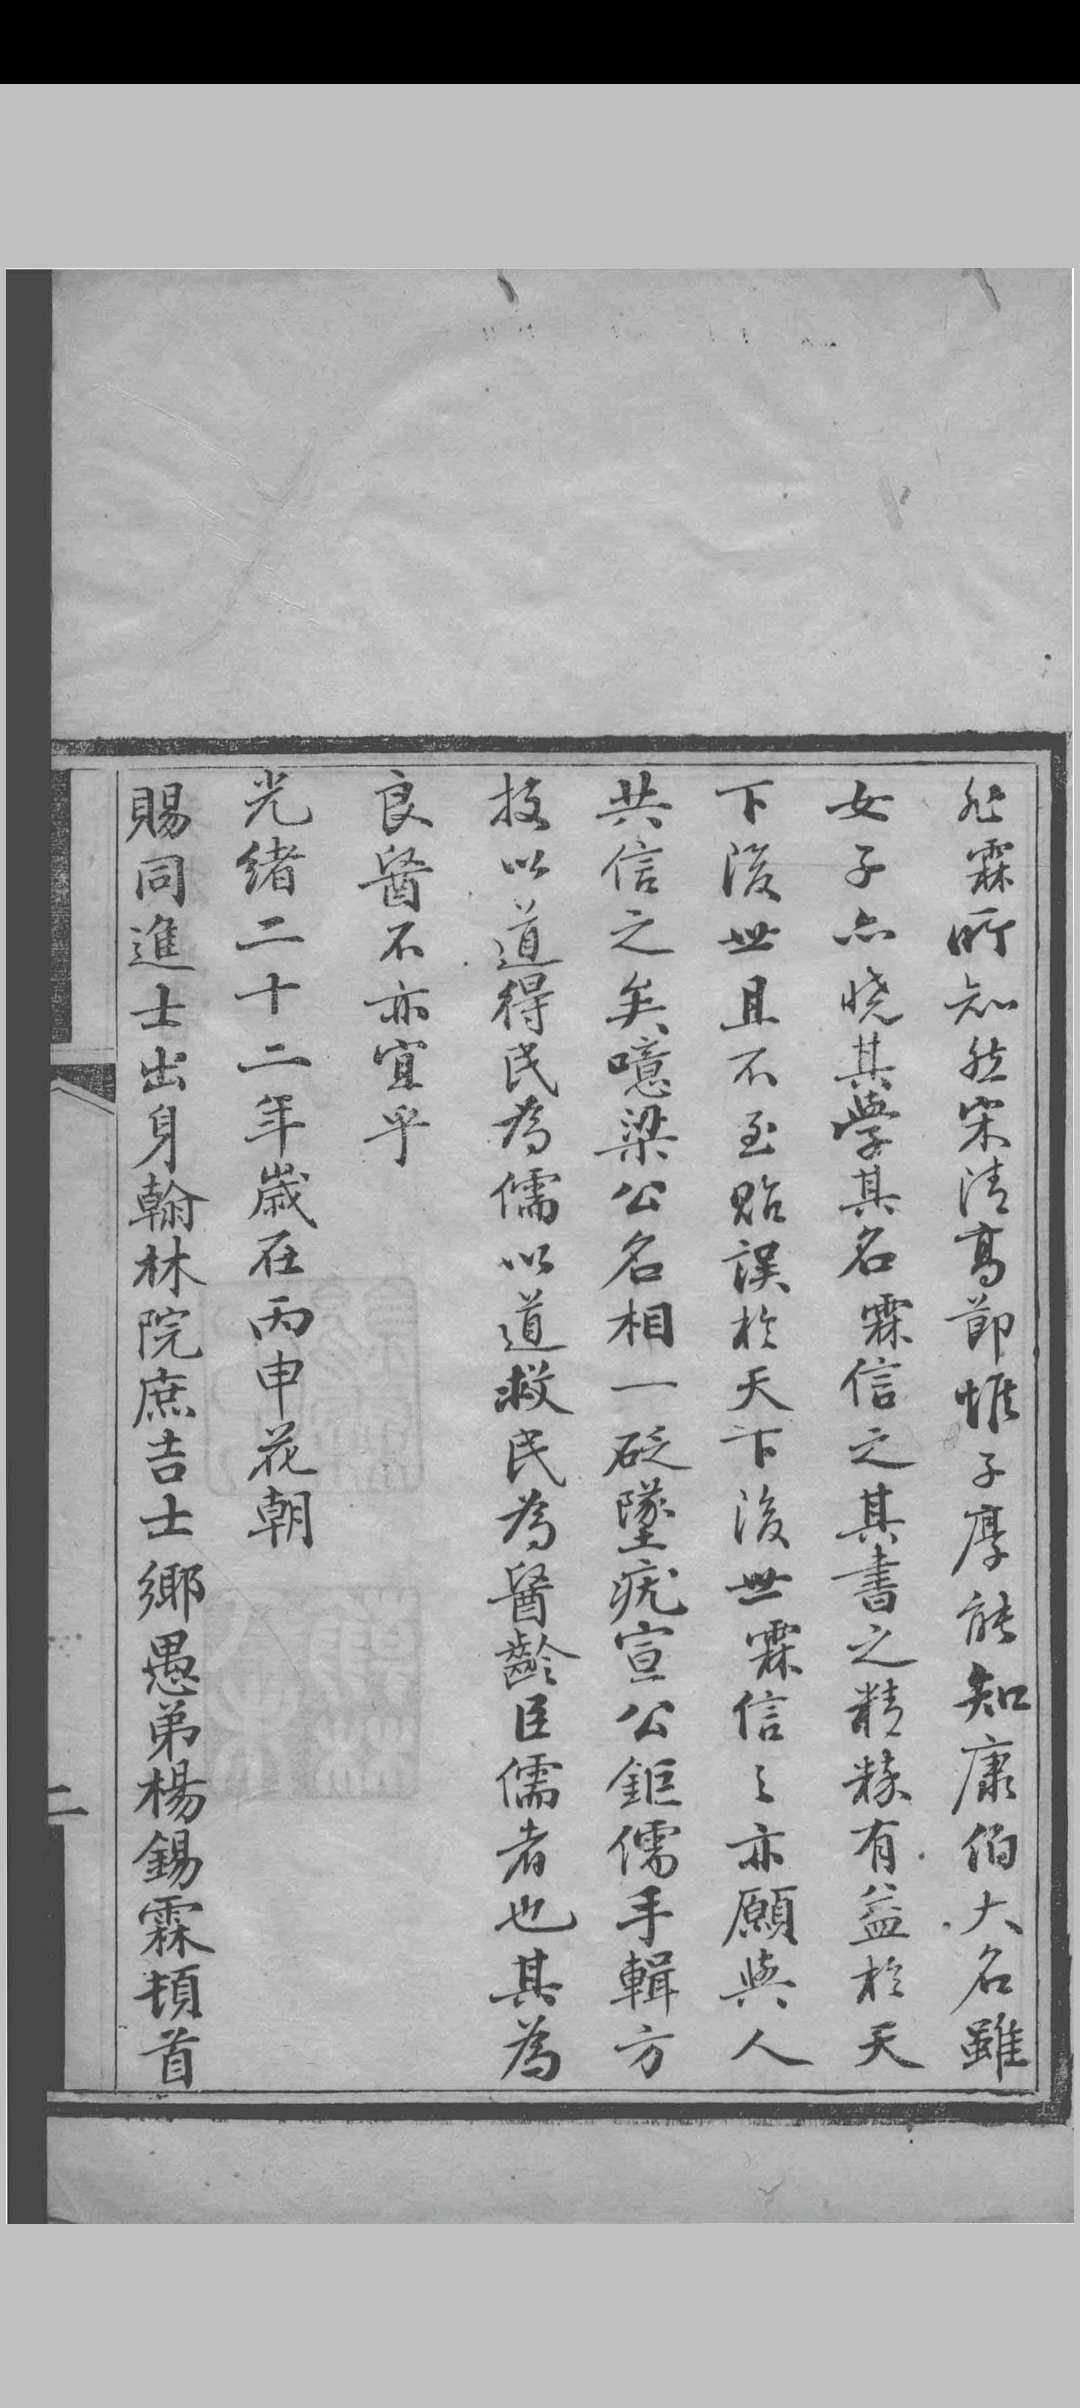 非霖所知然宋清高節惟子厚能知康伯大名雖
女子亦曉其學其名霖信之其書之精粹有益於天
下後世且不至貽誤於天下後世霖信之亦願與人
共信之矣噫梁公名相一砭墜疣宣公鉅儒手輯方
技以道得民為儒以道救民為醫齡臣儒者也其為
良醫不亦宜乎
光緒二十二年歲在丙申花朝
賜同進士出身翰林院庶吉士鄉愚弟楊錫霖頓首
二